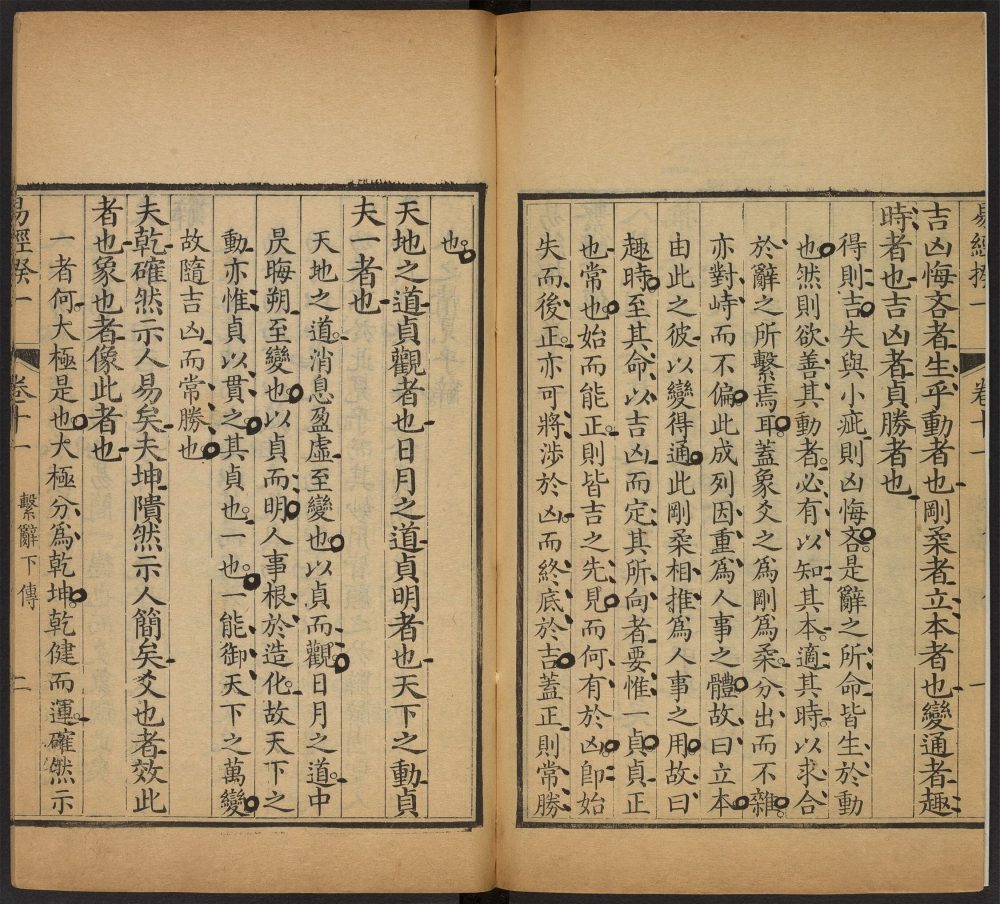 易經揆一
卷十一
一
吉凶悔吝者生乎動者也剛柔者立本者也變通者趣
時者也吉凶者貞勝者也
得則吉失與小疵則凶悔吝是辭之所命皆生於動
也然則欲善其動者必有以知其本適其時以求合
於辭之所繫焉耳蓋象爻之爲剛爲柔分出而不雜
亦對峙而不偏此成列因重爲人事之體故曰立本
由此之彼以變得通此剛柔相推爲人事之用故曰
趣時至其命以吉凶而定其所向者要惟一貞貞正
也常也始而能正則皆吉之先見而何有於凶卽始
失而後正亦可將涉於凶而終底於吉蓋正則常勝
也
天地之道貞觀者也日月之道貞明者也天下之動貞
夫一者也
天地之道消息盈虛至變也以貞而觀日月之道中
昃晦朔至變也以貞而明人事根於造化故天下之
動亦惟貞以貫之其貞也一也一能御天下之萬變
故隨吉凶而常勝也
夫乾確然示人易矣夫坤隤然示人簡矣爻也者效此
者也象也者像此者也
一者何大極是也大極分爲乾坤乾健而運確然示
易經揆一
卷十一
繫辭下傳
二